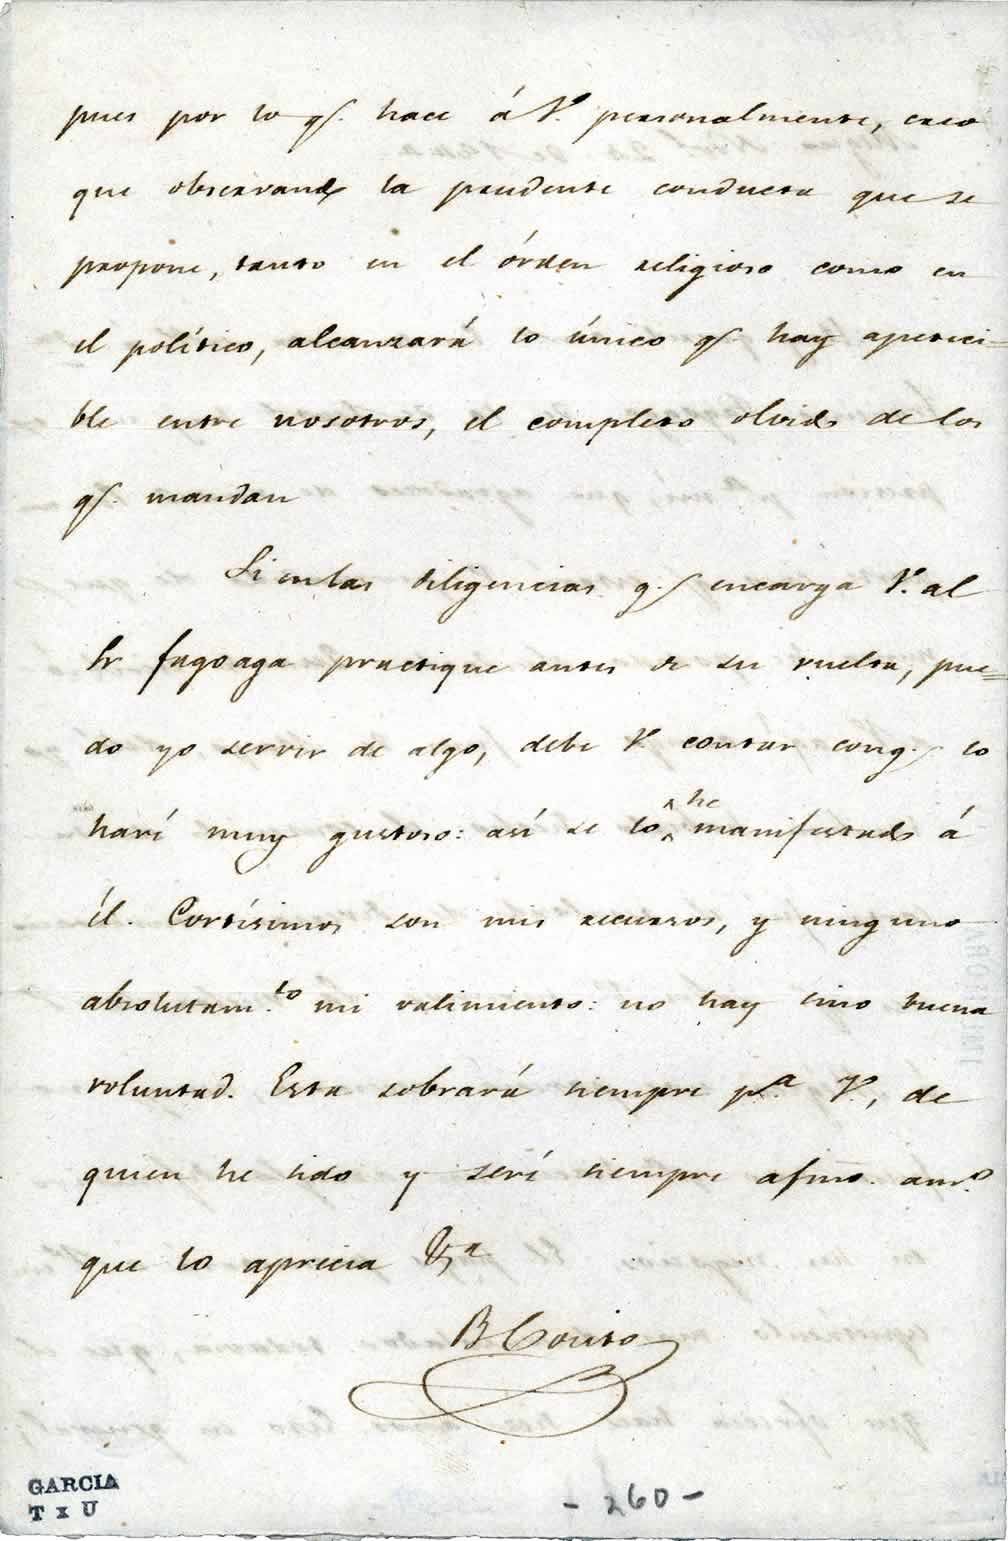 pues por lo q. hace á V. personalmente, creo
que observando la prudente conducta que se
propone, tanto en el órden religioso como en
el político, alcanzará lo único q. hay apeteci-
ble entre nosotros, el completo olvido de los
q. mandan
Si en las diligencias q. encarga V. al
Sr fagoaga practique antes de su vuelta, pue=
do yo servir de algo, debe V. contar con q. lo
haré muy gustoso: así se lo he manifestado á
él. Cortísimos son mis recursos, y ninguno
absolutam.to mi valimiento: no hay sino buena
voluntad. Esta sobrará siempre p.a V., de
quien he sido y seré siempre afmo. am.o
que lo aprecia
B Couto
GARCIA
T x U
- 260 -